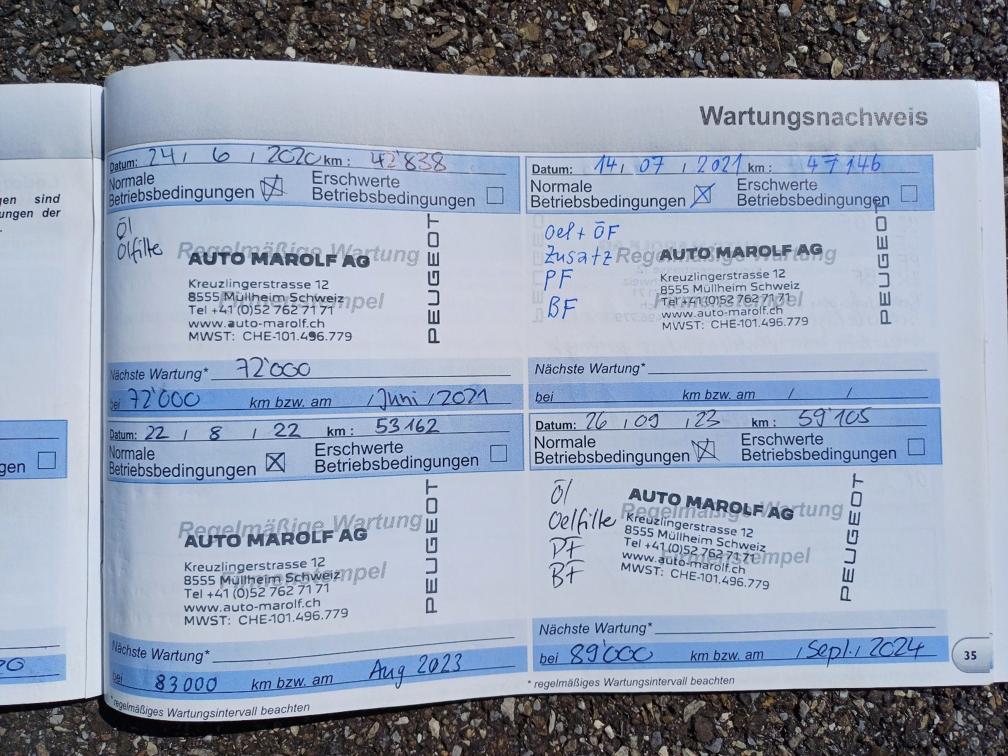 gen sind
ungen der
.
gen
20
Wartungsnachweis
Datum: 24 / 6 / 2020 km: 42'838
Normale Betriebsbedingungen ☒ Erschwerte Betriebsbedingungen ☐
Öl
Ölfilte
Regelmäßige Wartung
AUTO MAROLF AG
Kreuzlingerstrasse 12
8555 Müllheim Schweiz
Firmenstempel
Tel +41 (0)52 762 71 71
www.auto-marolf.ch
MWST: CHE-101.496.779
PEUGEOT
Nächste Wartung* 72'000
bei 72'000 km bzw. am / Juni / 2021
Datum: 14 / 07 / 2021 km: 47146
Normale Betriebsbedingungen ☒ Erschwerte Betriebsbedingungen ☐
Oel + ÖF
Zusatz
PF
BF
Regelmäßige Wartung
AUTO MAROLF AG
Kreuzlingerstrasse 12
8555 Müllheim Schweiz
Firmenstempel
Tel +41 (0)52 762 71 71
www.auto-marolf.ch
MWST: CHE-101.496.779
PEUGEOT
Nächste Wartung*
bei km bzw. am / /
Datum: 22 / 8 / 22 km: 53162
Normale Betriebsbedingungen ☒ Erschwerte Betriebsbedingungen ☐
Regelmäßige Wartung
AUTO MAROLF AG
Kreuzlingerstrasse 12
8555 Müllheim Schweiz
Firmenstempel
Tel +41 (0)52 762 71 71
www.auto-marolf.ch
MWST: CHE-101.496.779
PEUGEOT
Nächste Wartung*
bei 83000 km bzw. am Aug 2023
* regelmäßiges Wartungsintervall beachten
Datum: 26 / 09 / 23 km: 59'105
Normale Betriebsbedingungen ☒ Erschwerte Betriebsbedingungen ☐
Öl
Oelfilte
PF
BF
Regelmäßige Wartung
AUTO MAROLF AG
Kreuzlingerstrasse 12
8555 Müllheim Schweiz
Firmenstempel
Tel +41 (0)52 762 71 71
www.auto-marolf.ch
MWST: CHE-101.496.779
PEUGEOT
Nächste Wartung*
bei 89'000 km bzw. am / Sept. / 2024
* regelmäßiges Wartungsintervall beachten
35